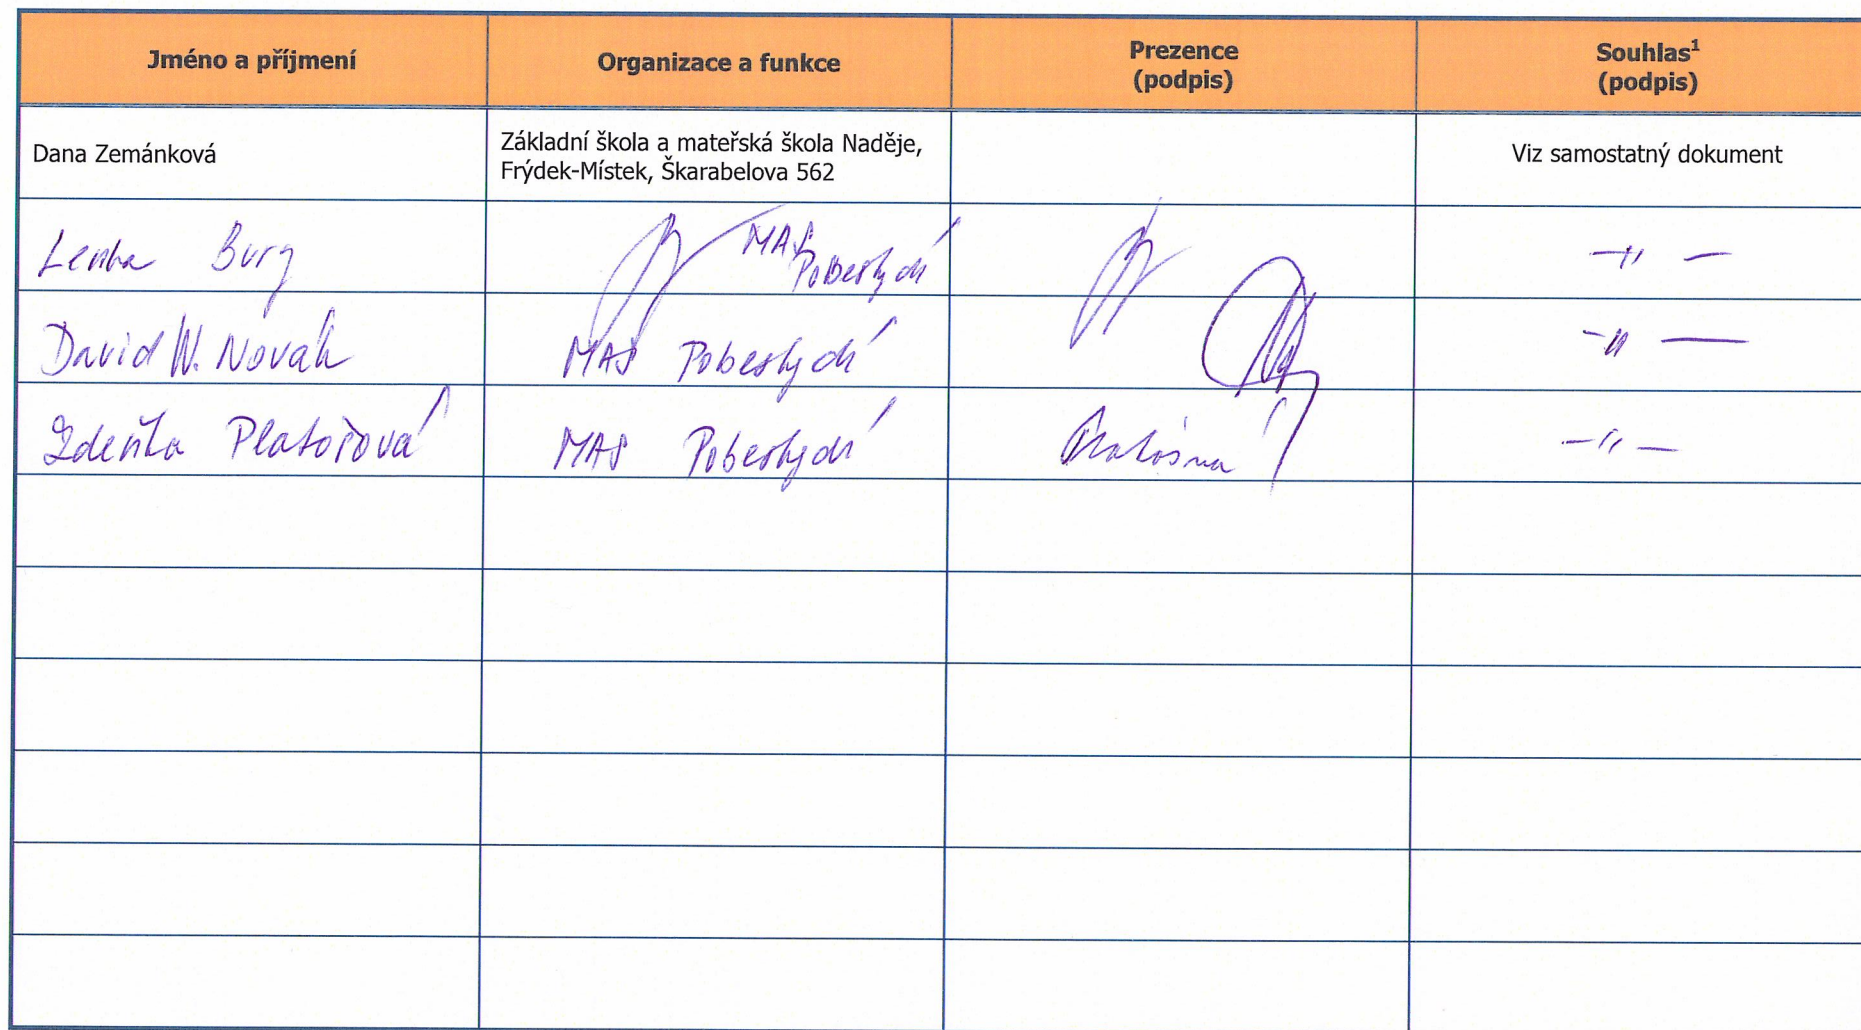 Jméno a příjmení
Organizace a funkce
Prezence
(podpis)
Souhlas¹
(podpis)
Dana Zemánková
Základní škola a mateřská škola Naděje,
Frýdek-Místek, Škarabelova 562
Viz samostatný dokument
Lenka Burg
MAS
Pobeskydí
-"-
David W. Novák
MAS Pobeskydí
-"-
Zdeňka
MAS Pobeskydí
-"-